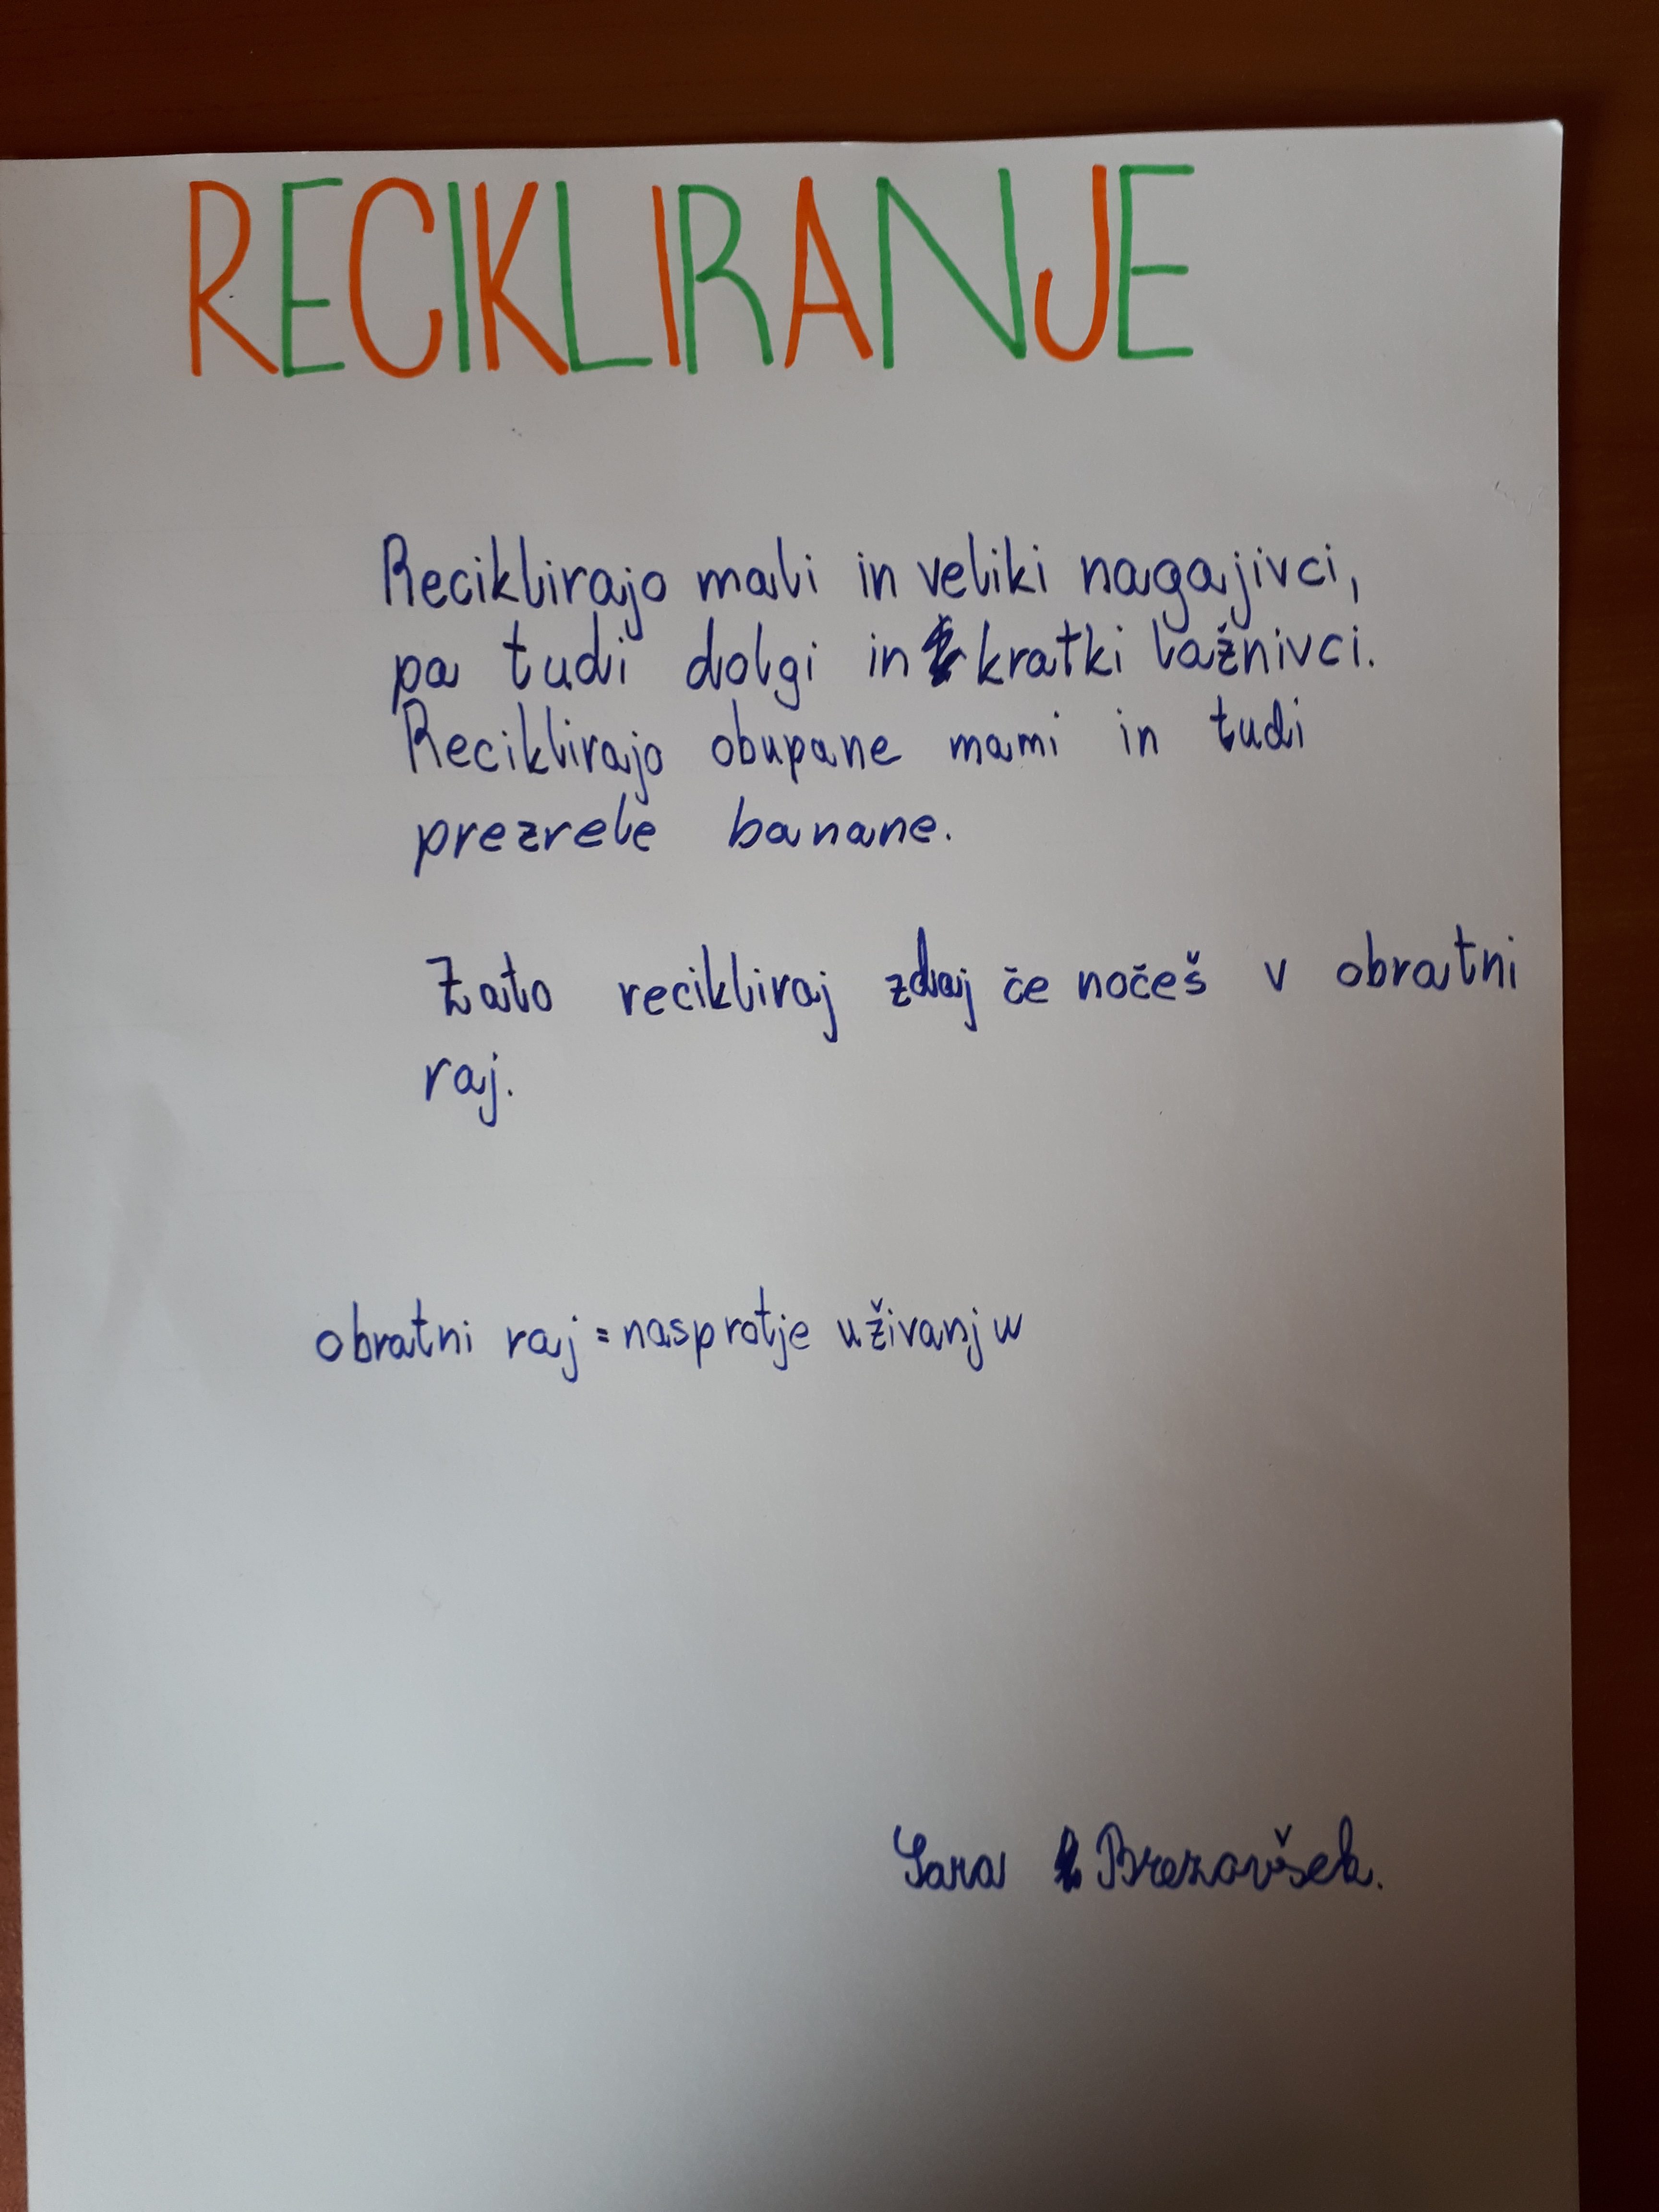 RECIKLIRANJE
Reciklirajo mali in veliki nagajivci,
pa tudi dolgi in kratki lažnivci.
Reciklirajo obupane mami in tudi
prezrele banane.
Zato recikliraj zdaj če nočeš v obratni
raj.
obratni raj = nasprotje uživanju
Sara Brezovšek.